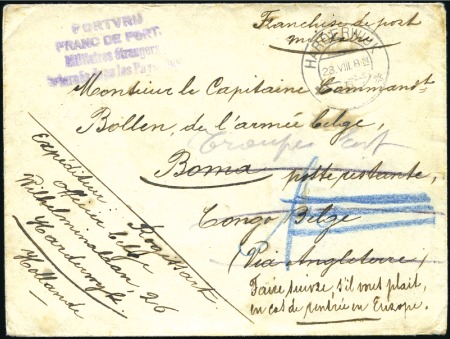 PORTVRIJ
FRANC DE PORT.
Militaires étrangers
internés dans les Pays-Bas
Franchise de post
militaire
HARDERWIJK
28.VIII.8
Monsieur le Capitaine Commandt
Bollen, de l'armée belge,
Troupes
Boma poste restante,
Congo Belge
(Via Angleterre)
Faire suivre, s'il vous plait,
en cas de rentrée en Europe.
Expéditeur
officier belge
Wilhelminalaan, 26
Harderwyk
Hollande